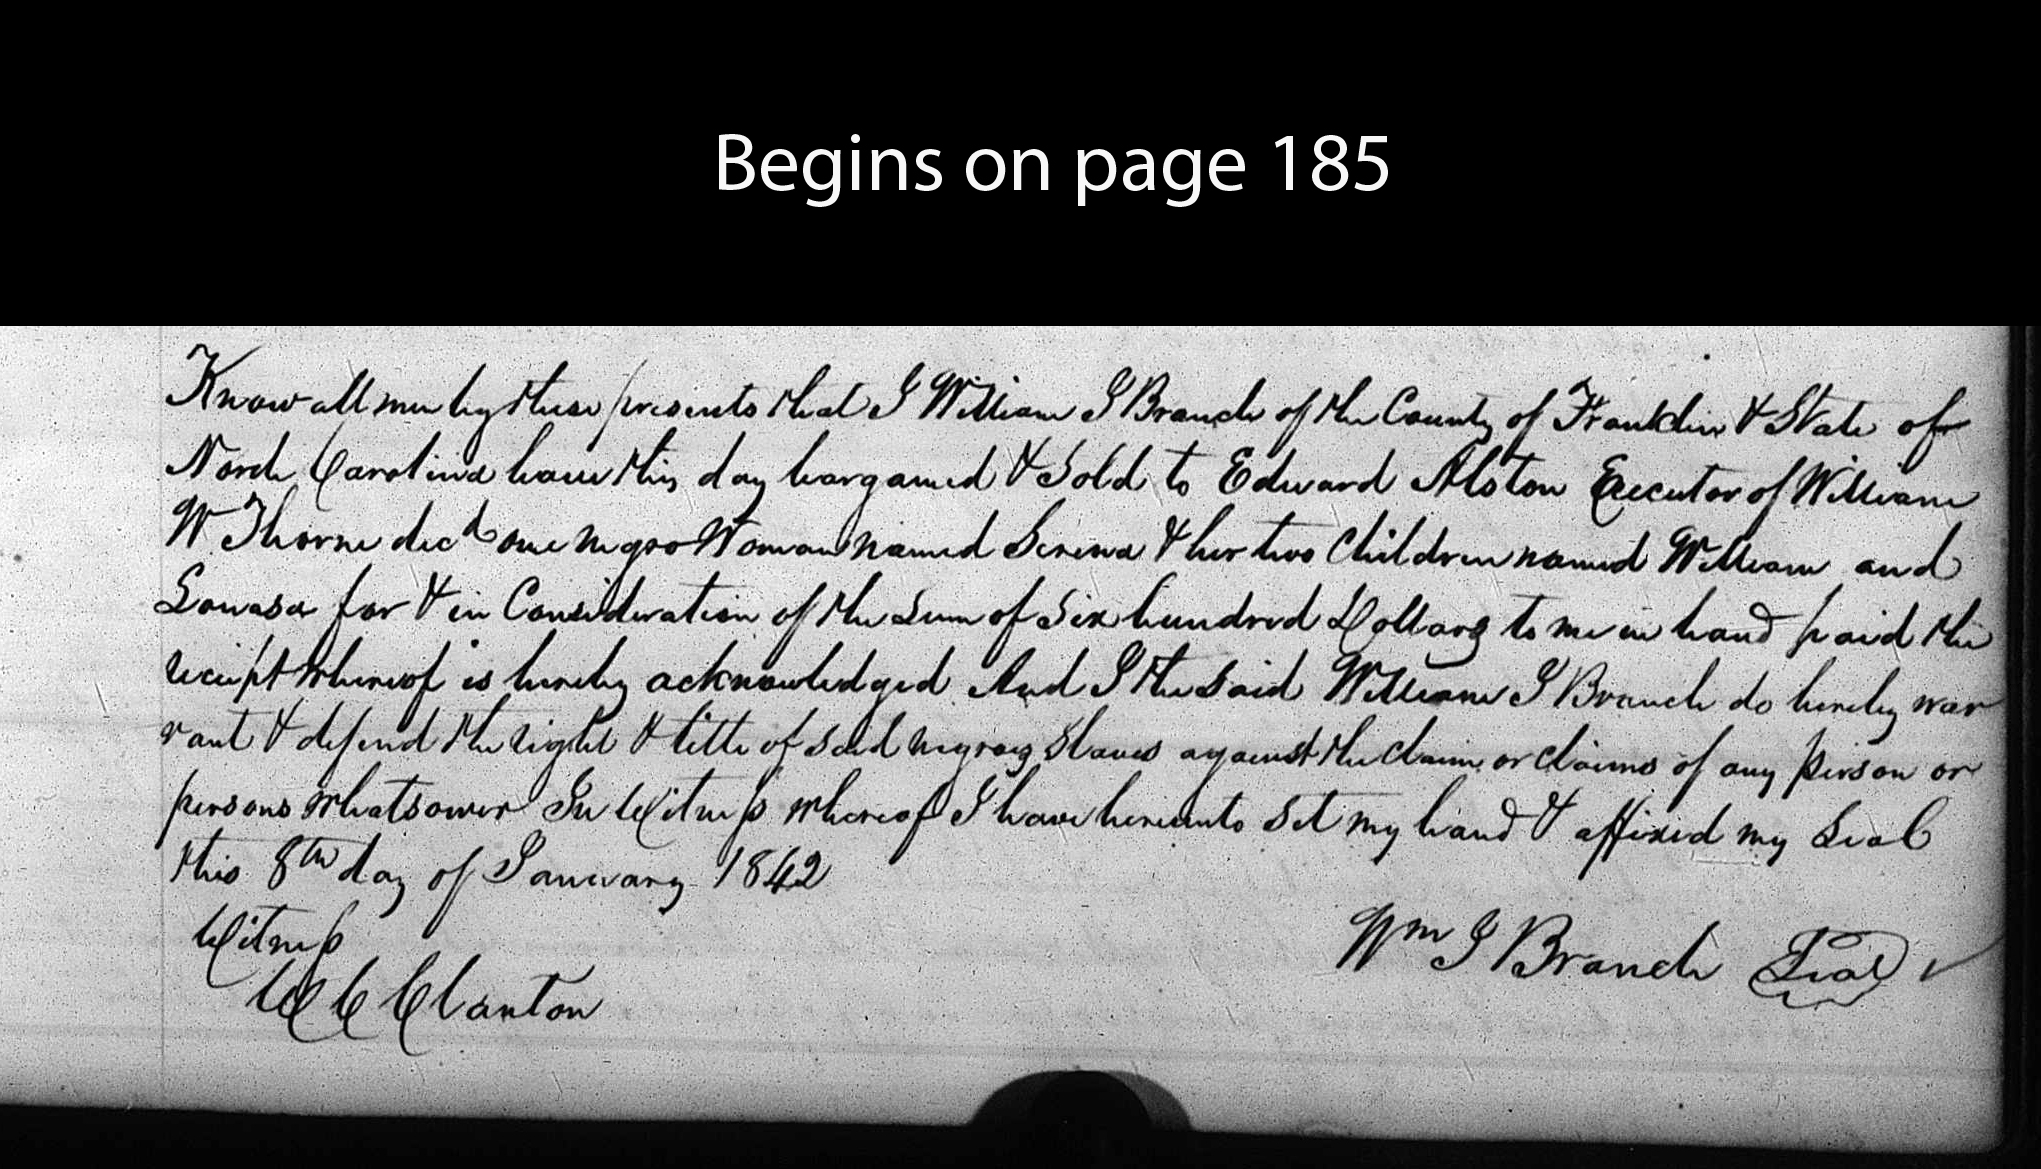 Begins on page 185
Know all men by these presents that I William J Branch of the County of Franklin & State of
North Carolina have this day bargained & Sold to Edward Alston Executor of William
W. Thorne decd one negro Woman named Serena & her two Children named William and
Louasa for & in Consideration of the Sum of Six hundred Dollars to me in hand paid the
receipt whereof is hereby acknowledged And I the Said William J Branch do hereby war
rant & defend the right & title of said negroes Slaves against the Claim or Claims of any person or
persons Whatsoever In Witness whereof I have hereunto Set my hand & affixed my Seal
this 8th day of January 1842
Witness
Wm J Branch Seal
W C Clanton